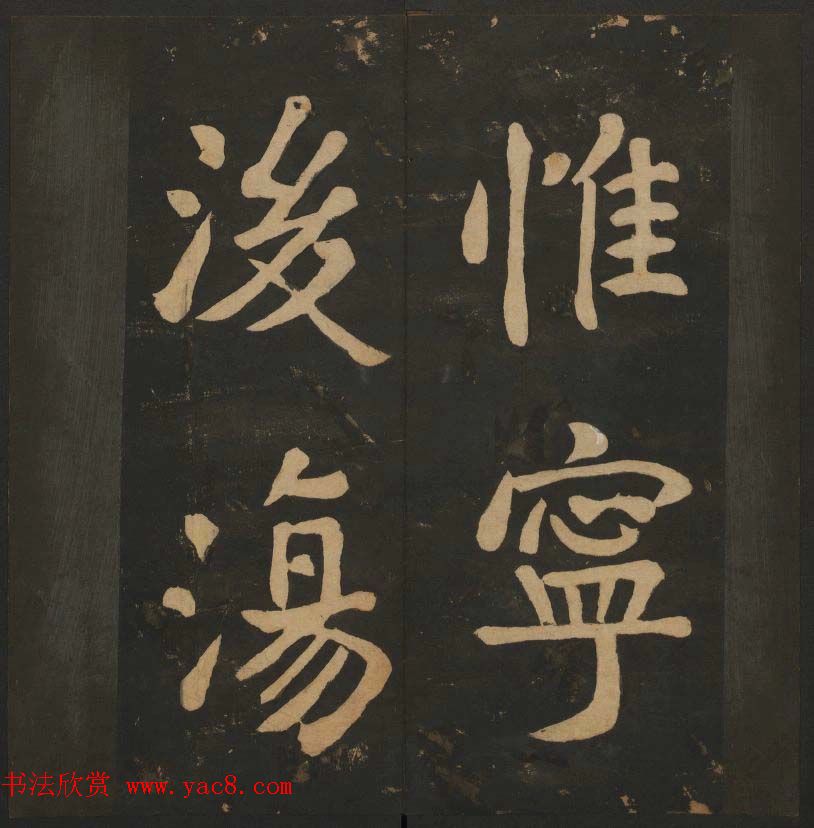 惟寧
後蕩
书法欣赏 www.yac8.com